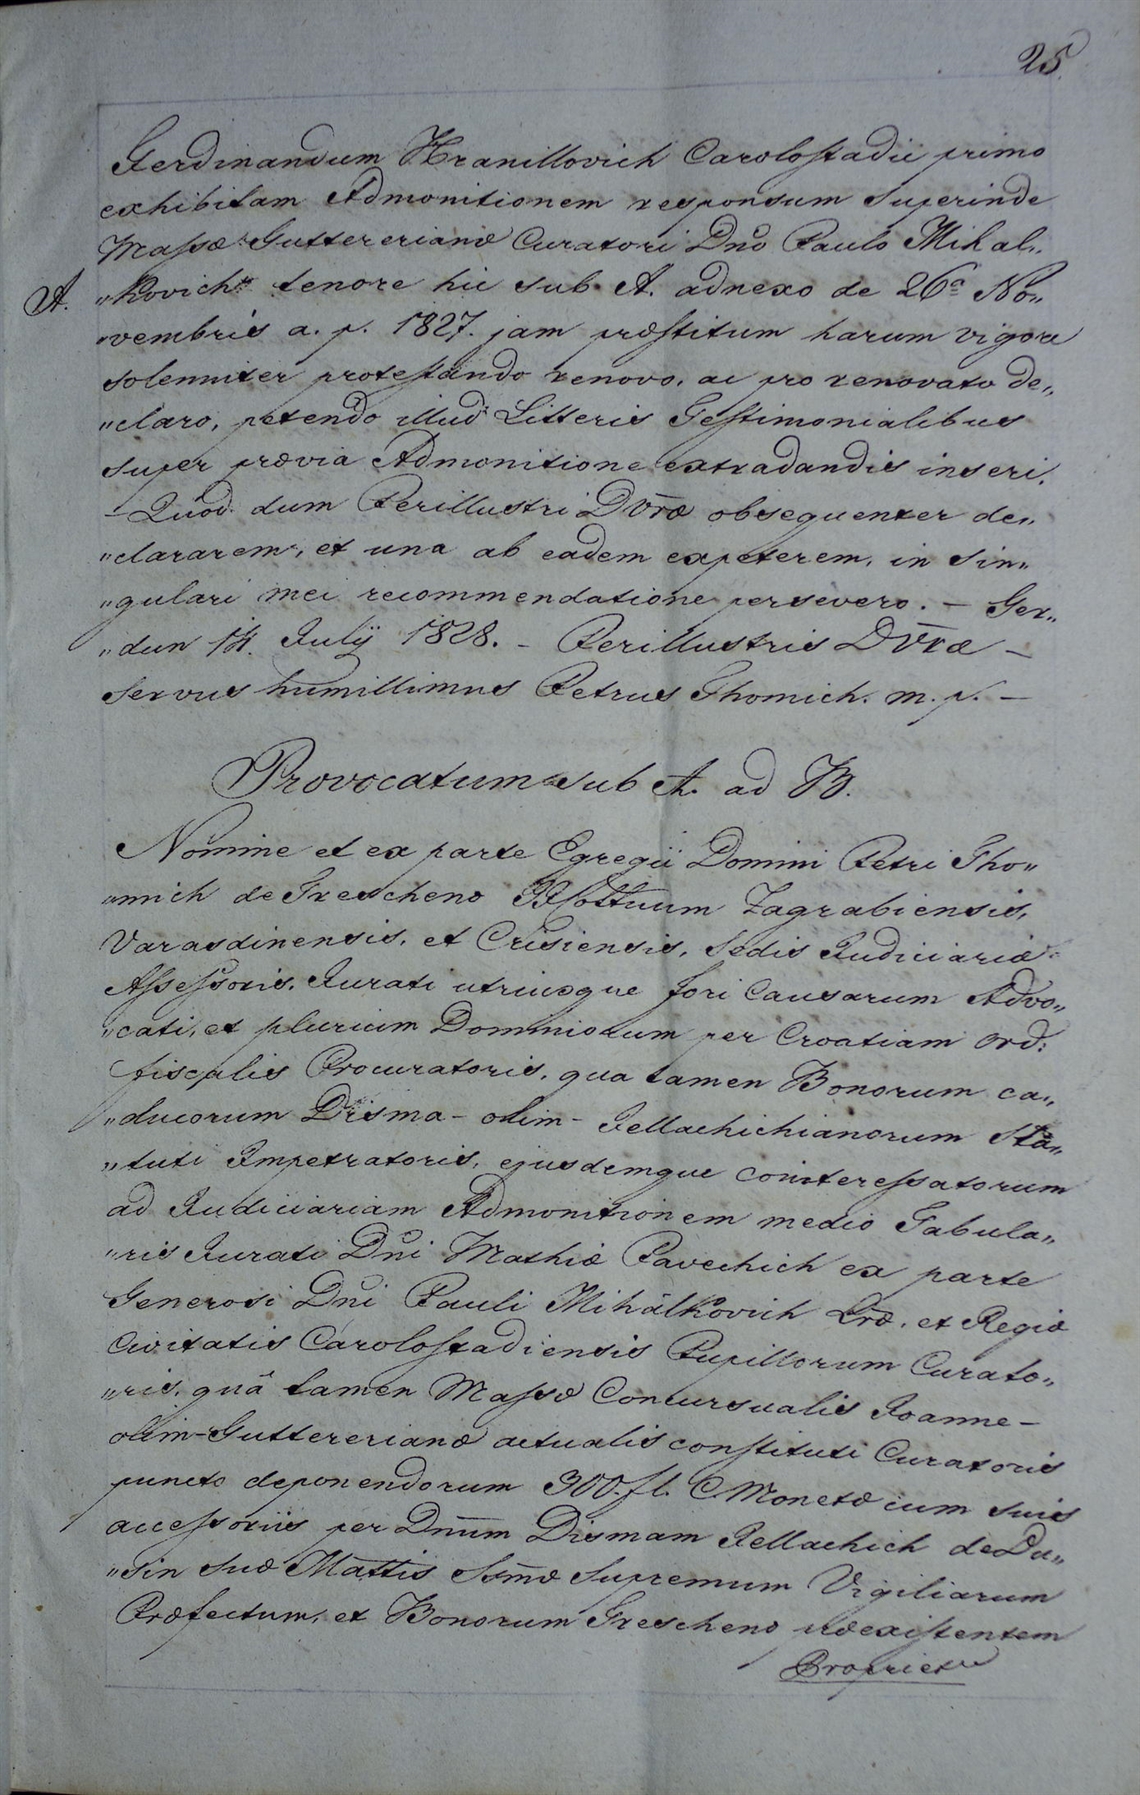 25.
Ferdinandum Hranillovich Carolostadii primo
exhibitam Admonitionem responsum superinde
Massæ Guttererianæ Curatori Dno Paulo Mihal„
A. „kovich tenore hic sub A. adnexo de 26a No„
„vembris a. p. 1827. jam præstitum harum vigore
solenniter protestando renovo, ac pro renovato de„
„claro, petendo illud Litteris Testimonialibus
super prævia Admonitione extradandis inseri.
– Quod dum Perillustri DVræ obsequenter de„
„clararem, et una ab eadem expeterem, in sin„
„gulari mei recommendatione persevero. – Ger„
„dun 14. July 1828. – Perillustris DVræ –
servus humillimus Petrus Thomich. m. p. –
Provocatum sub A. ad B.
Nomine et ex parte Egregii Domini Petri Tho„
„mich de Frescheno Cottuum Zagrabiensis,
Varasdinensis, et Crisiensis, Sedis Judiciariæ
Assessoris, Jurati utriusque fori Causarum Advo„
„cati, et plurium Dominiorum per Croatiam ord:
fiscalis Procuratoris, qua tamen Bonorum ca„
„ducorum Disma – olim – Jellachichianorum sta„
„tuti Impetratoris, ejusdemque cointeressatorum
ad Judiciariam Admonitionem medio Tabula„
„ris Jurati Dni Mathiæ Pavechich ex parte
Generosi Dni Pauli Mihálkovich Lræ, et Regiæ
Civitatis Carolostadiensis Pupillorum Curato„
„ris, quà tamen Massæ Concursualis Joanne –
olim – Guttererianæ actualis constituti Curatoris
puncto deponendorum 300. fl. C. Monetæ cum suis
accessoriis per Dnum Dismam Jellachich de Bu„
„sin Suæ Mattis Ssmæ Supremum Vigiliarum
Præfectum, et Bonorum Frescheno præexistentem
Propriet